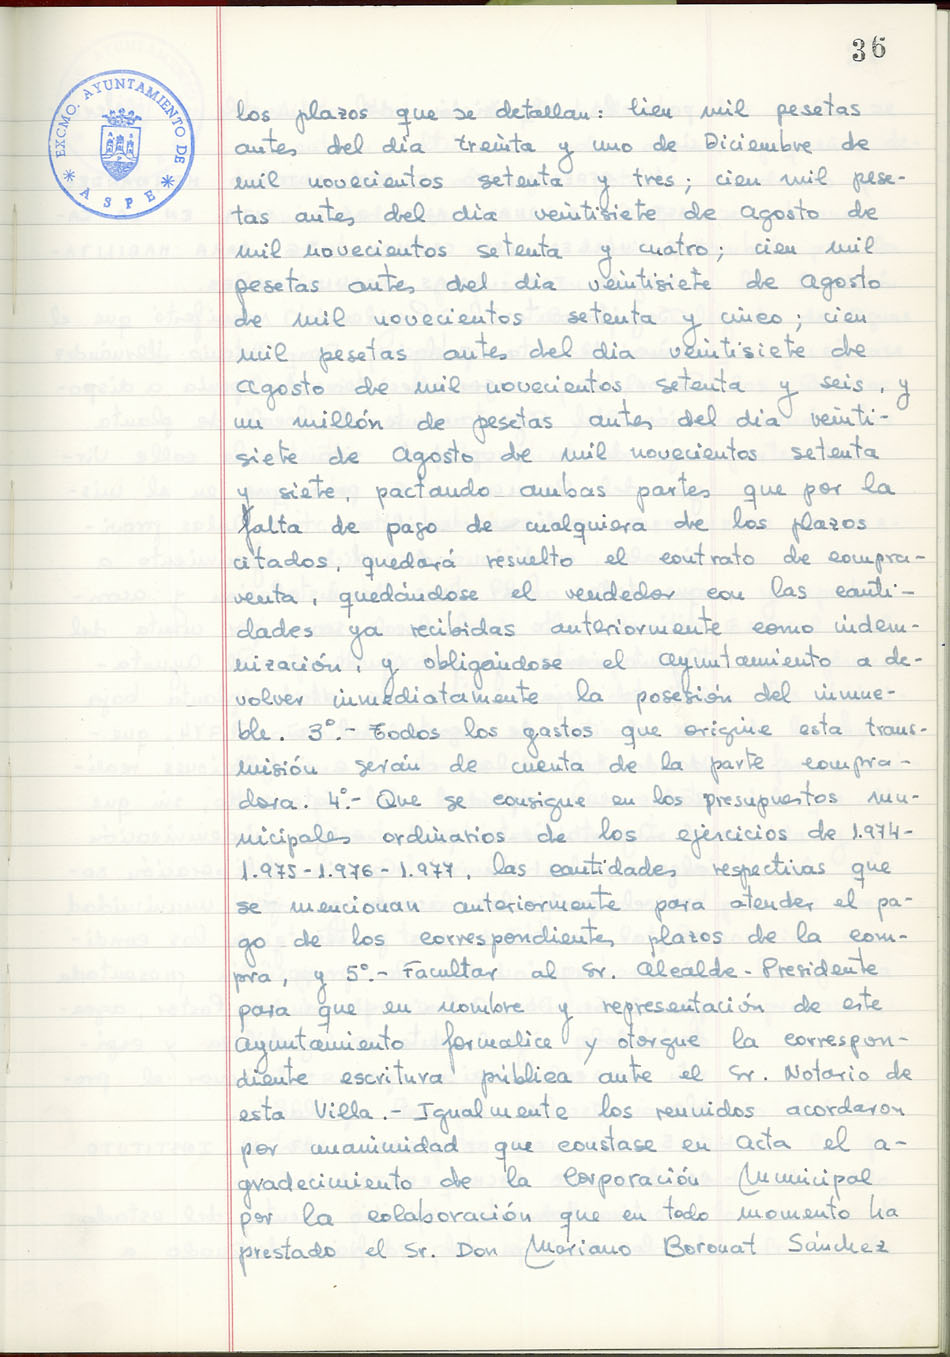 36
EXCMO. AYUNTAMIENTO DE
* ASPE *
los plazos que se detallan: Cien mil pesetas
antes del dia treinta y uno de Diciembre de
mil novecientos setenta y tres; cien mil pese-
tas antes del dia veintisiete de Agosto de
mil novecientos setenta y cuatro; cien mil
pesetas antes del dia veintisiete de Agosto
de mil novecientos setenta y cinco; cien
mil pesetas antes del dia veintisiete de
Agosto de mil novecientos setenta y seis, y
un millón de pesetas antes del dia veinti-
siete de Agosto de mil novecientos setenta
y siete, pactando ambas partes que por la
falta de pago de cualquiera de los plazos
citados, quedará resuelto el contrato de compra-
venta, quedándose el vendedor con las canti-
dades ya recibidas anteriormente como indem-
nización, y obligándose el Ayuntamiento a de-
volver inmediatamente la posesión del inmue-
ble. 3º.- Todos los gastos que origine esta trans-
misión serán de cuenta de la parte compra-
dora. 4º.- Que se consigne en los presupuestos mu-
nicipales ordinarios de los ejercicios de 1.974-
1.975-1.976-1.977, las cantidades respectivas que
se mencionan anteriormente para atender el pa-
go de los correspondientes plazos de la com-
pra, y 5º.- Facultar al Sr. Alcalde-Presidente
para que en nombre y representación de este
Ayuntamiento formalice y otorgue la correspon-
diente escritura pública ante el Sr. Notario de
esta Villa.- Igualmente los reunidos acordaron
por unanimidad que constase en Acta el a-
gradecimiento de la Corporación Municipal
por la colaboración que en todo momento ha
prestado el Sr. Don Mariano Boronat Sánchez